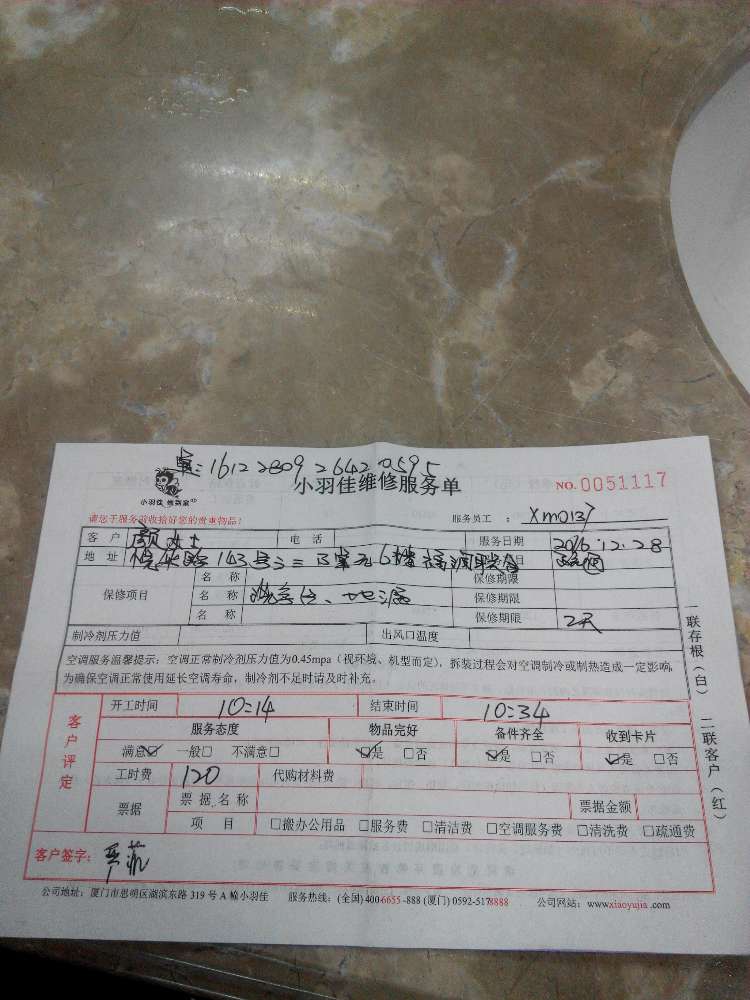 1612280926420595
小羽佳维修服务单
NO.0051117
小羽佳 维到家
请您于服务前收拾好您的贵重物品!
服务员工 : Xm0137
客户 颜女士 电话 服务日期 2016.12.28
地址 143号 6楼 服务项目 疏通
保修项目 名称 保修期限
名称 洗手台、地漏 保修期限
名称 保修期限 2天
制冷剂压力值 出风口温度
空调服务温馨提示:空调正常制冷剂压力值为0.45mpa(视环境、机型而定),拆装过程会对空调制冷或制热造成一定影响,
为确保空调正常使用延长空调寿命,制冷剂不足时请及时补充。
客户评定
开工时间 10:14 结束时间 10:34
服务态度 物品完好 备件齐全 收到卡片
满意☑ 一般□ 不满意□ ☑是 □否 ☑是 □否 ☑是 □否
工时费 120 代购材料费
票据 票据名称 票据金额
项目 □搬办公用品 □服务费 □清洁费 □空调服务费 □清洗费 □疏通费
客户签字:
公司地址:厦门市思明区湖滨东路 319 号 A 幢小羽佳 服务热线:(全国) 400-6655-888 (厦门) 0592-5178888 公司网站:www.xiaoyujia.com
一联存根(白) 二联客户(红)